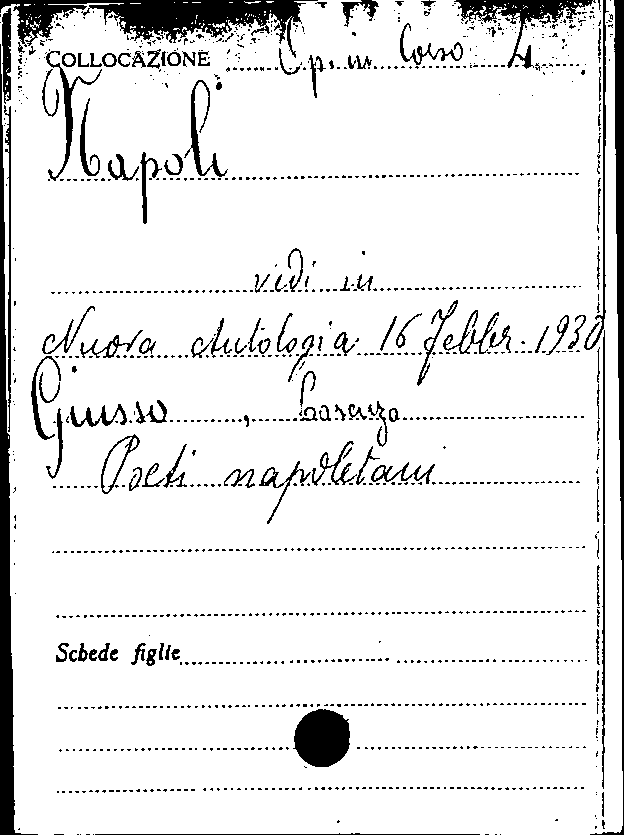 COLLOCAZIONE Op. in Corso 4
Napoli
vedi in
Nuova Antologia 16 Febbr. 1930
Giusso,
Poeti napoletani
Schede figlie